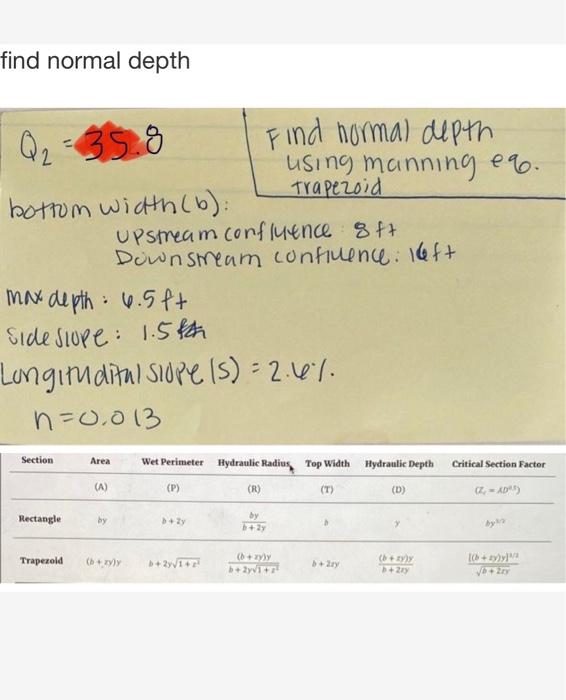 find normal depth
Q₂ = 35.8
Find normal depth
using manning eq.
trapezoid
bottom width (b):
upstream confluence: 8 ft
Downstream confluence: 16 ft
max depth: 6.5 ft
side slope: 1.5
Longitudital slope (s) = 2.6%.
n = 0.013
Section Area Wet Perimeter Hydraulic Radius Top Width Hydraulic Depth Critical Section Factor
(A) (P) (R) (T) (D) (Z꜀ = AD⁰·⁵)
Rectangle by b + 2y by/(b + 2y) b y by³ᐟ²
Trapezoid (b + zy)y b + 2y√(1 + z²) (b + zy)y/(b + 2y√(1 + z²)) b + 2zy (b + zy)y/(b + 2zy) [(b + zy)y]³ᐟ²/√(b + 2zy)